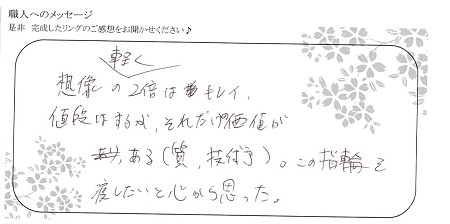 職人へのメッセージ
是非 完成したリングのご感想をお聞かせください♪
軽く
想像の2倍はキレイ、
値段はするが、それだけ価値が
ある(質、技術等)。この指輪を
渡したいと心から思った。